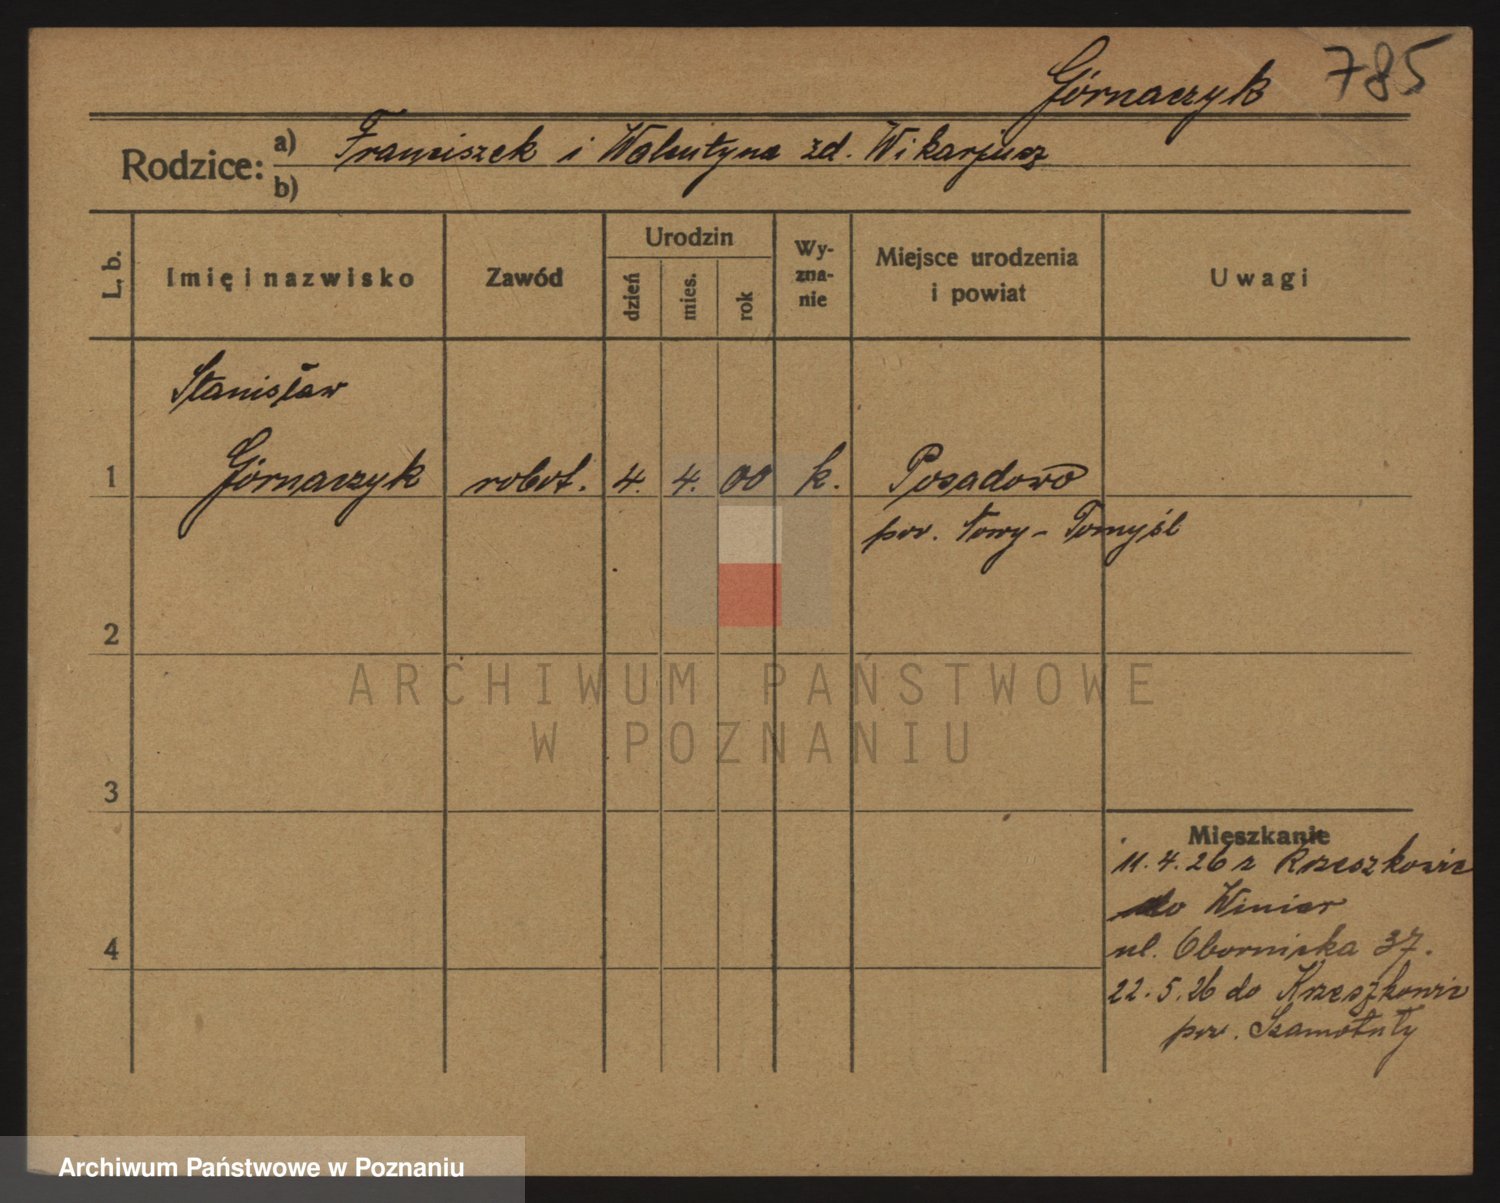 Górnaczyk 785
Rodzice:
a) Franciszek i Walentyna zd. Wikarjusz
b)
L. b.
Imię i nazwisko
Zawód
Urodzin
dzień
mies.
rok
Wy-
zna-
nie
Miejsce urodzenia
i powiat
Uwagi
Stanisław
1 Górnaczyk robot. 4. 4. 00 k. Posadowo
pow. Nowy-Tomyśl
2
3
4
Mieszkanie
11.4.26 z Krzeszkowic
do Winiar
ul. Obornicka 37.
22.5.26 do Krzeszkowic
pow. Szamotuły
ARCHIWUM PAŃSTWOWE
W POZNANIU
Archiwum Państwowe w Poznaniu